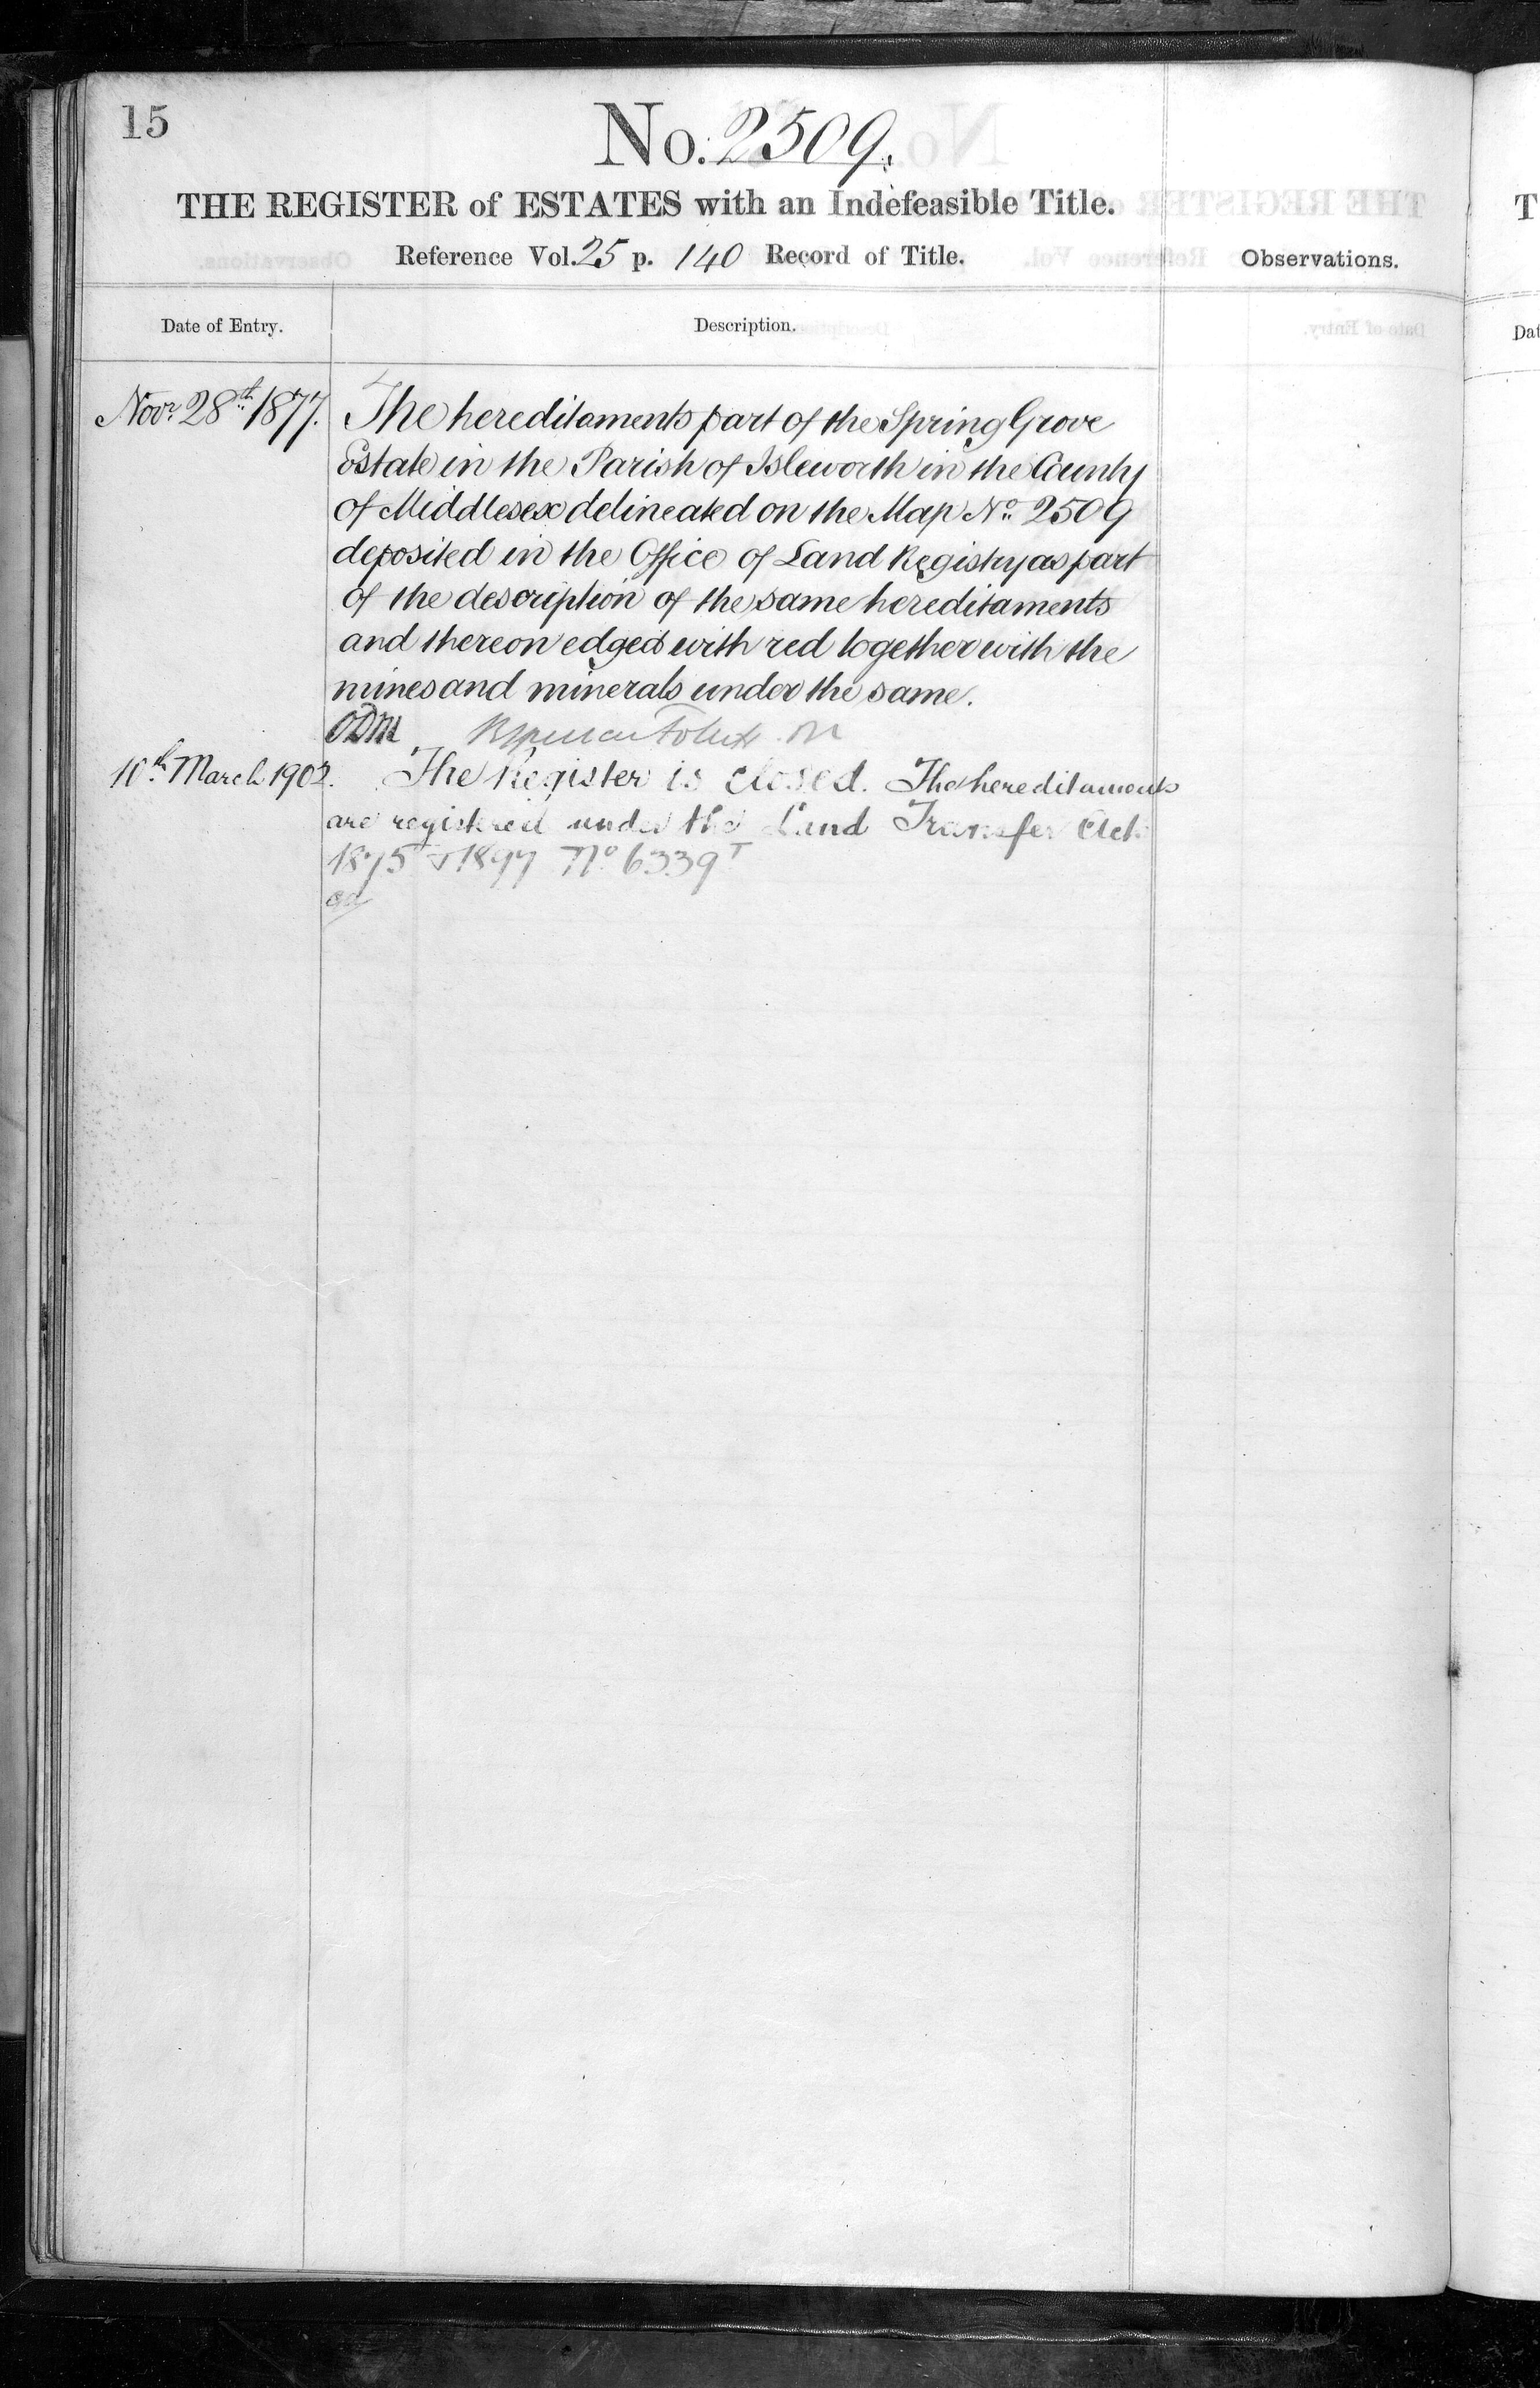 15
No. 2509.
THE REGISTER of ESTATES with an Indefeasible Title.
Reference Vol. 25 p. 140 Record of Title.
Observations.
Date of Entry.
Description.
Novr. 28th 1877.
The hereditaments part of the Spring Grove
Estate in the Parish of Isleworth in the County
of Middlesex delineated on the Map No. 2509
deposited in the Office of Land Registry as part
of the description of the same hereditaments
and thereon edged with red together with the
mines and minerals under the same.
ODM
10th March 1902.
The Register is closed. The hereditaments
are registered under the Land Transfer Acts
1875 & 1897 No 6339